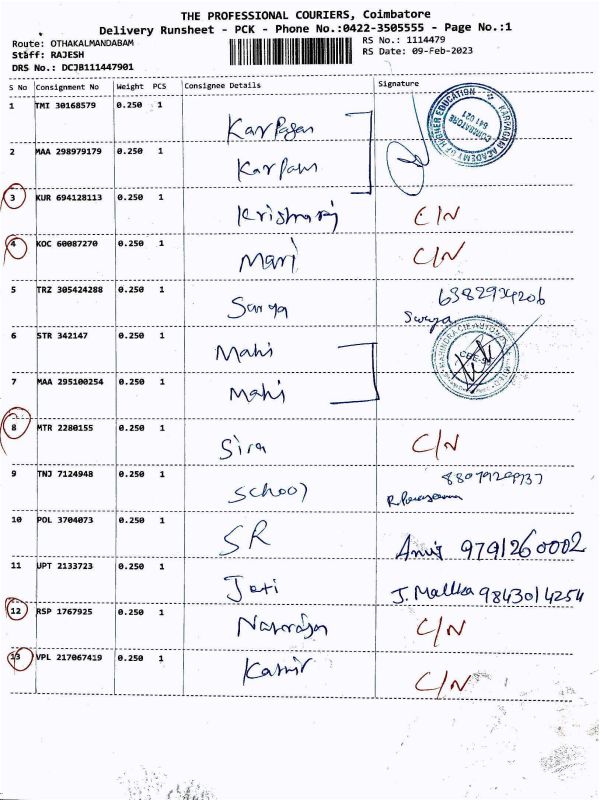 THE PROFESSIONAL COURIERS, Coimbatore
Delivery Runsheet - PCK - Phone No.:0422-3505555 - Page No.:1
Route: OTHAKALMANDABAM
Staff: RAJESH
DRS No.: DCJB111447901
RS No.: 1114479
RS Date: 09-Feb-2023
S No Consignment No Weight PCS Consignee Details Signature
1 TMI 30168579 0.250 1 Karpagan
KARPAGAM ACADEMY OF HIGHER EDUCATION
COIMBATORE
641 021
2 MAA 298979179 0.250 1 Karpam
3 KUR 694128113 0.250 1 Krishnaraj C/N
4 KOC 60087270 0.250 1 Mari C/N
5 TRZ 305424288 0.250 1 Surya 6382924206
Surya
6 STR 342147 0.250 1 Mahi
7 MAA 295100254 0.250 1 Mahi
8 MTR 2280155 0.250 1 Sira C/N
9 TNJ 7124948 0.250 1 School
10 POL 3704073 0.250 1 SR 9791260002
11 UPT 2133723 0.250 1 Joti J. Mallka 9843014254
12 RSP 1767925 0.250 1 C/N
13 VPL 217067419 0.250 1 C/N